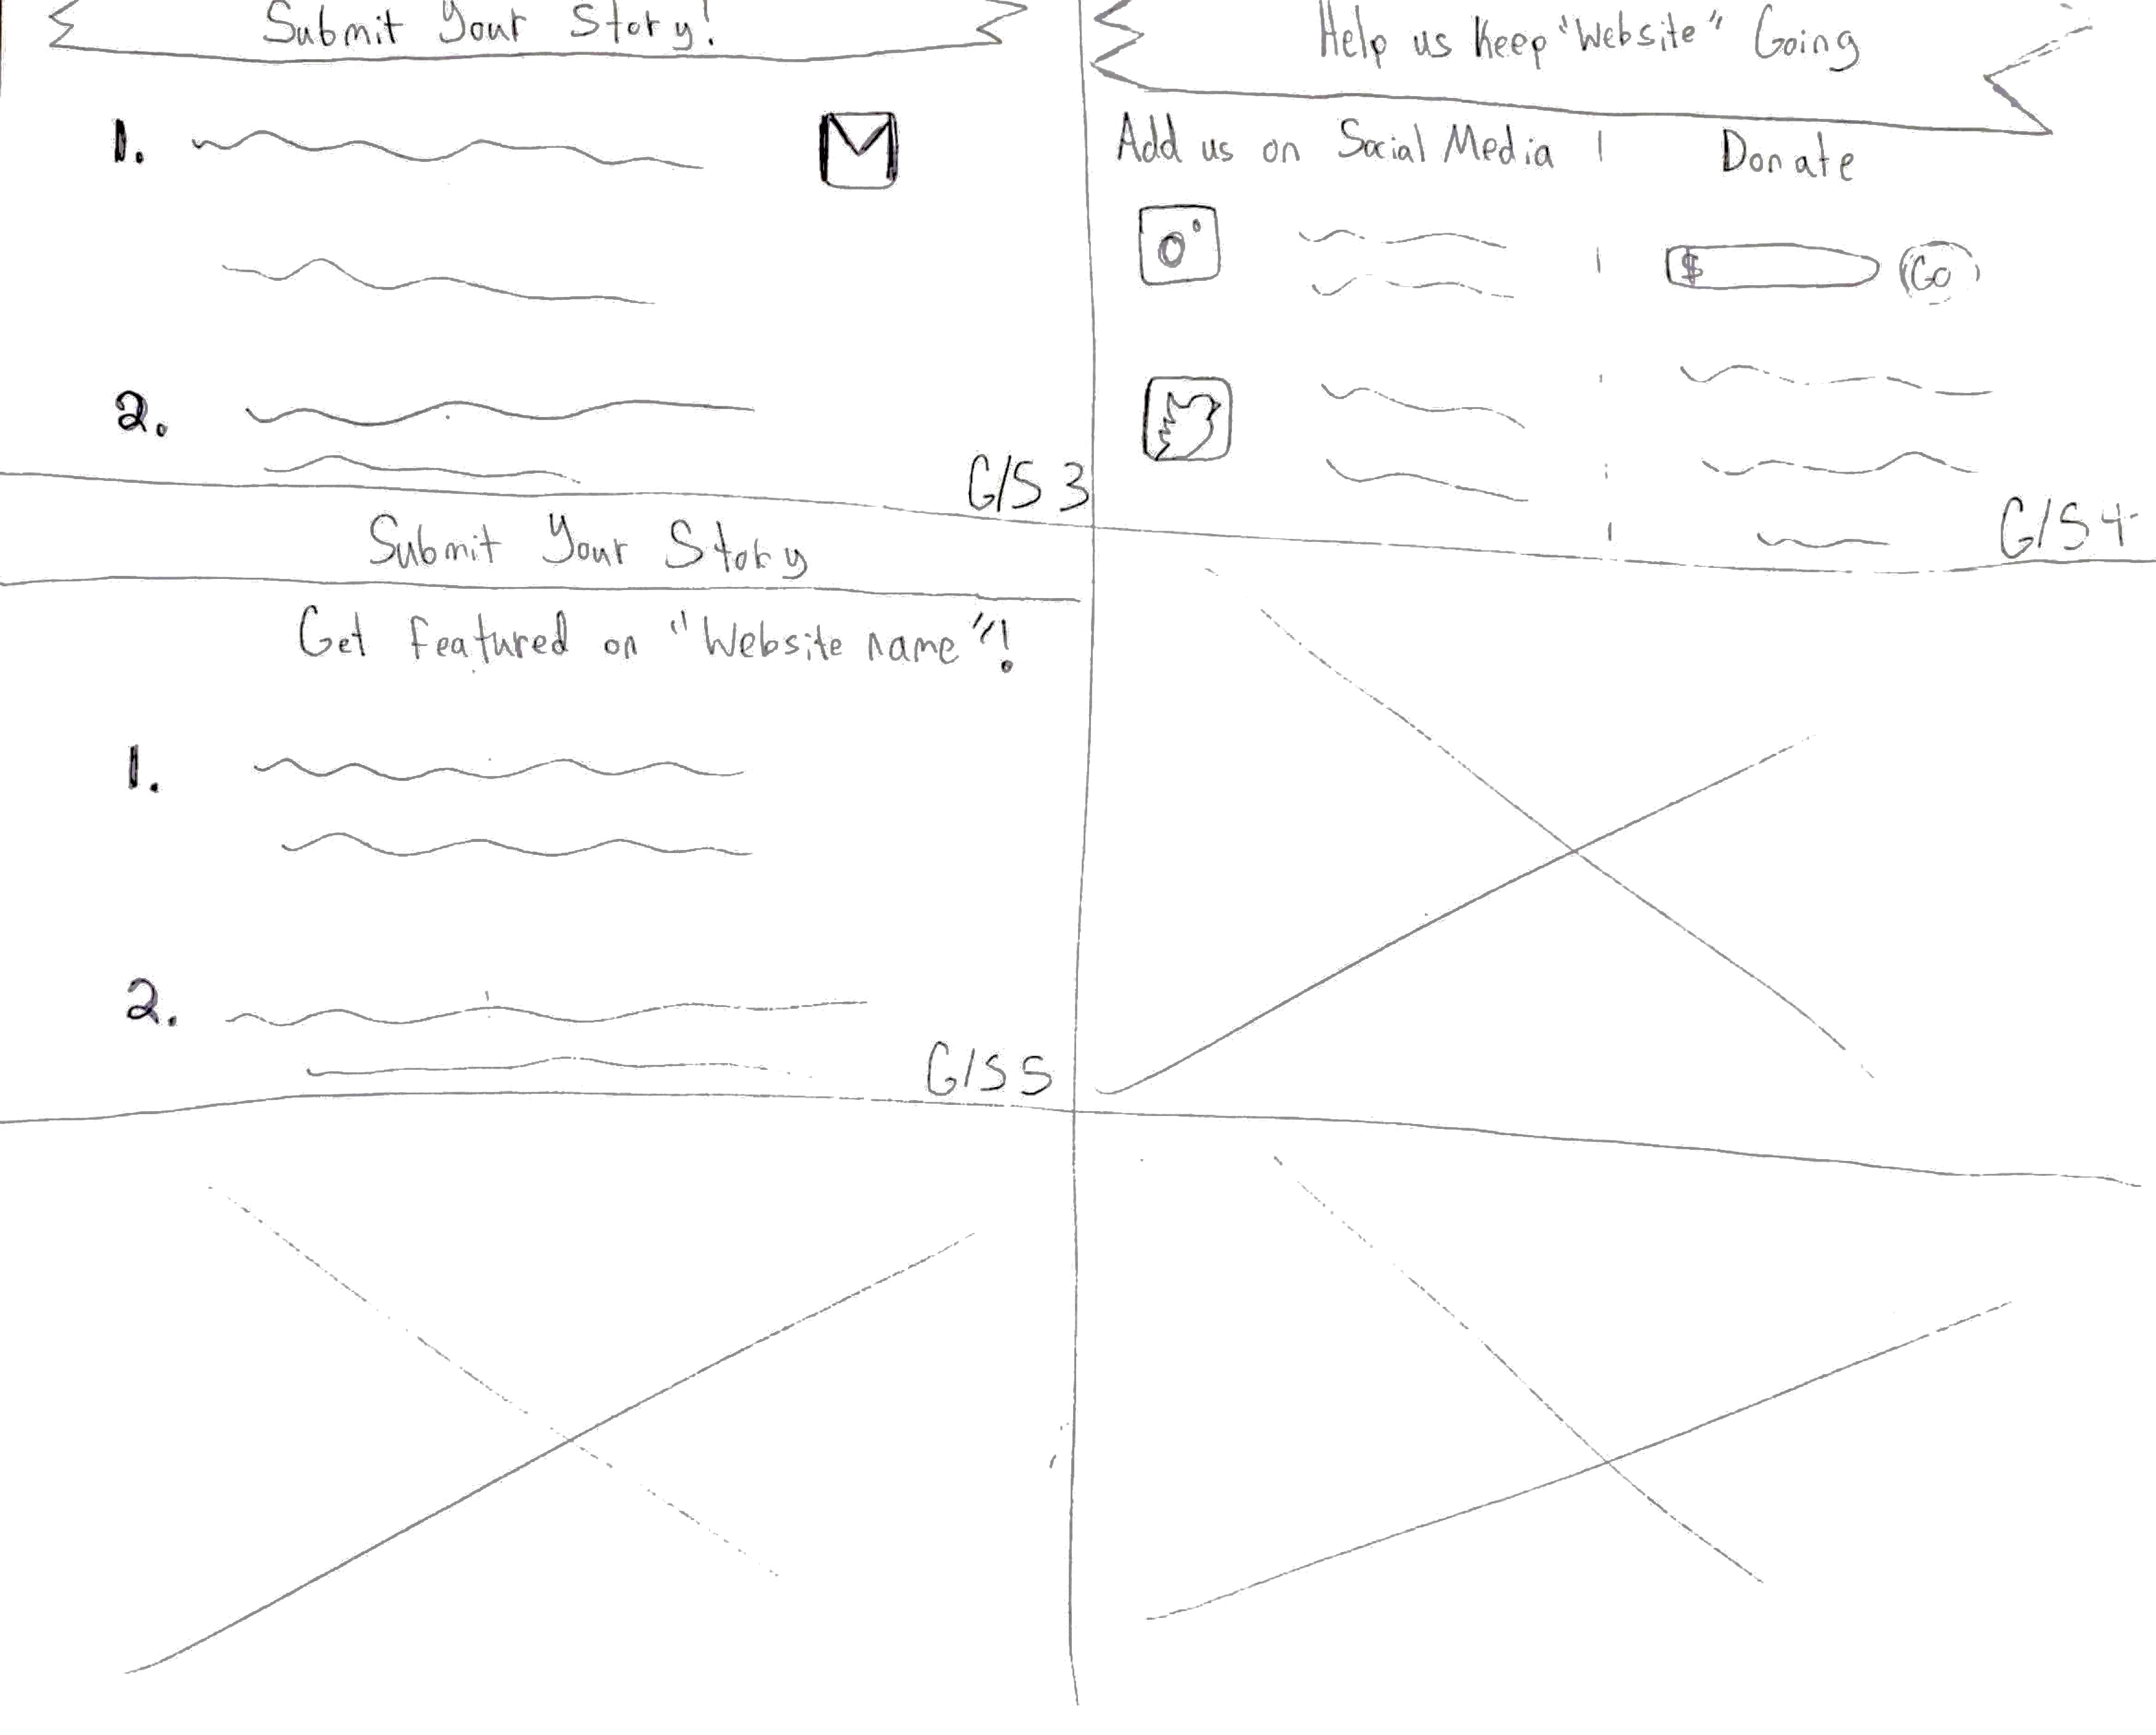 Submit Your Story!
1.
2.
G/S 3
Help us Keep "Website" Going
Add us on Social Media
Donate
$
Go
G/S 4
Submit Your Story
Get Featured on "Website name"!
1.
2.
G/S 5